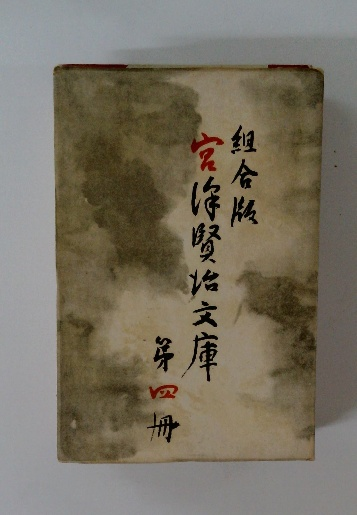 組合版
宮沢賢治文庫
第四冊